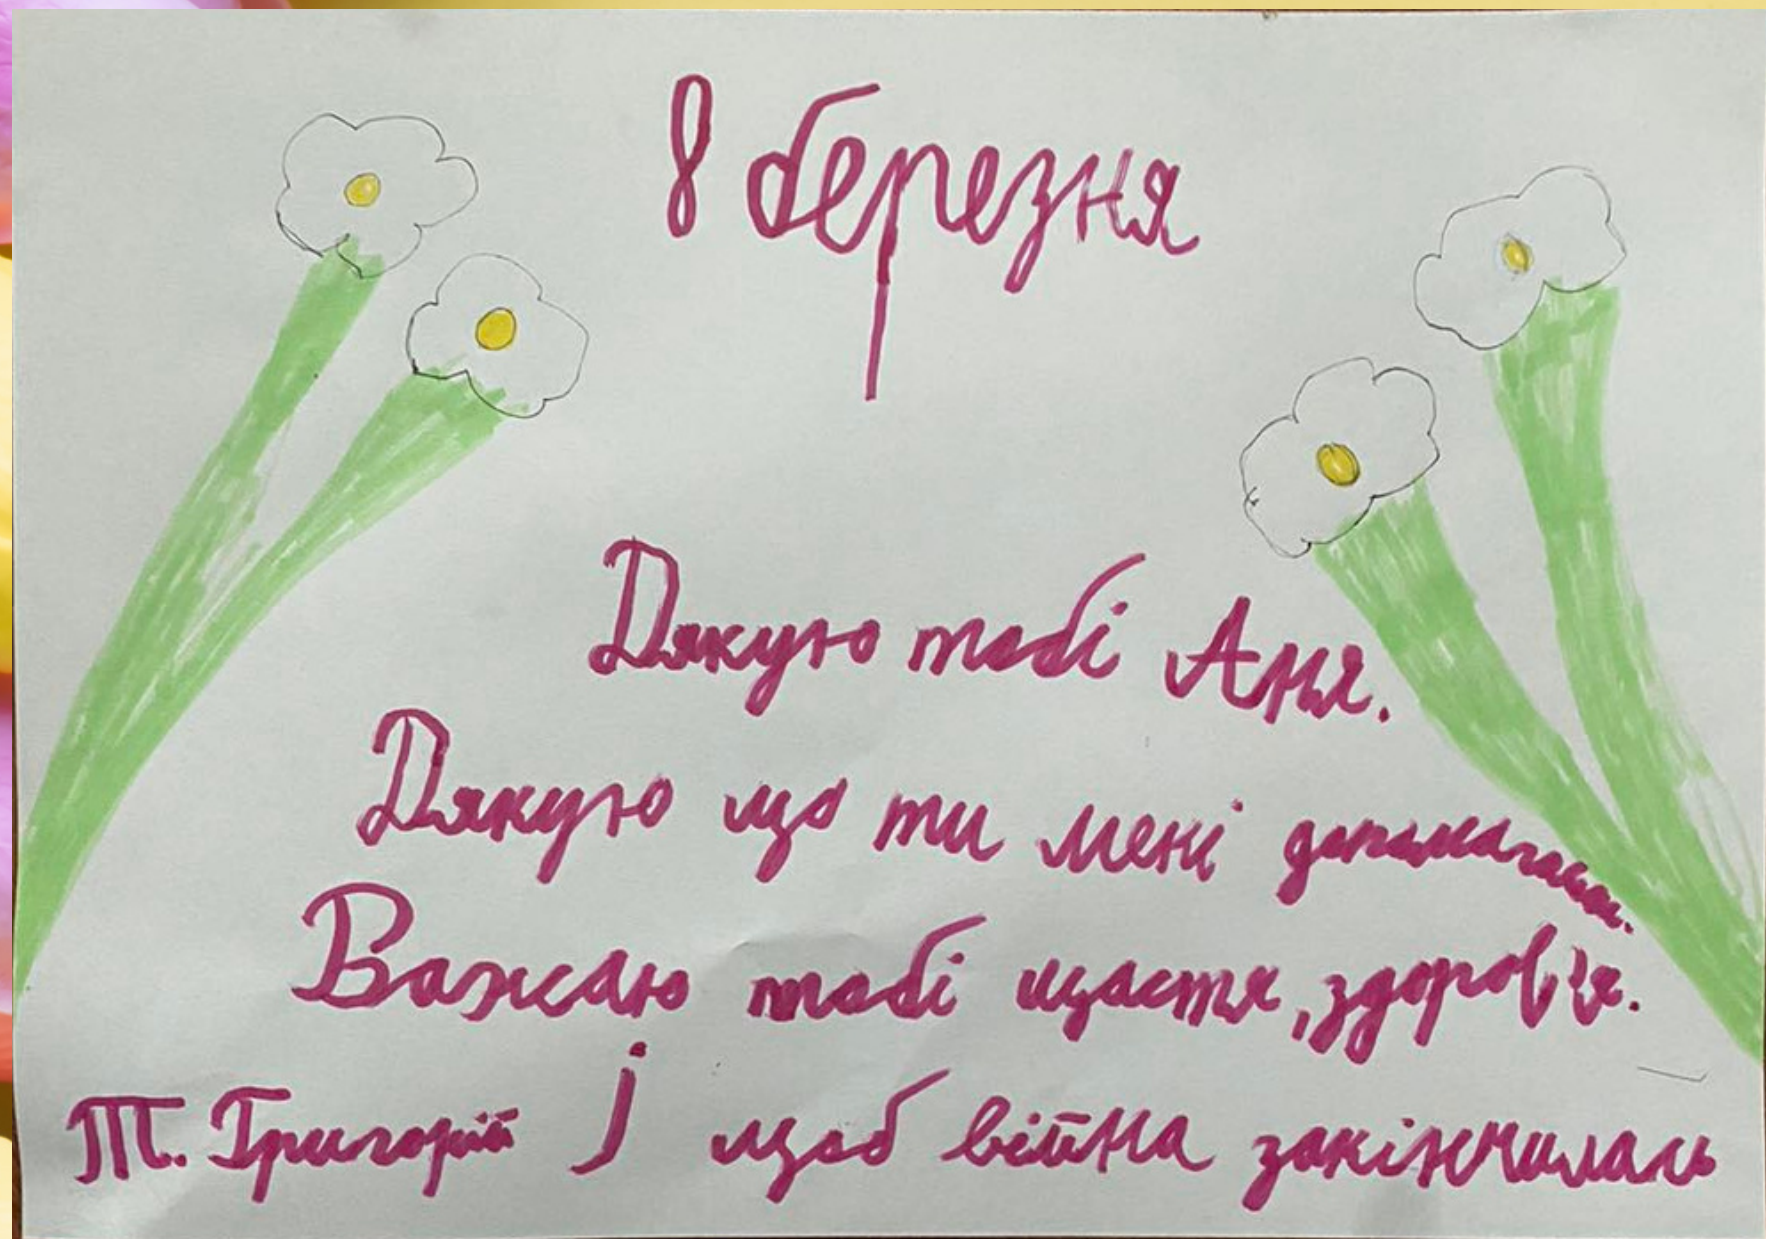 8 березня
Дякую тобі Аня.
Дякую що ти мені допомагаєш.
Важаю тобі щастя, здоров'я.
Т. Григорій І щоб війна закінчилась